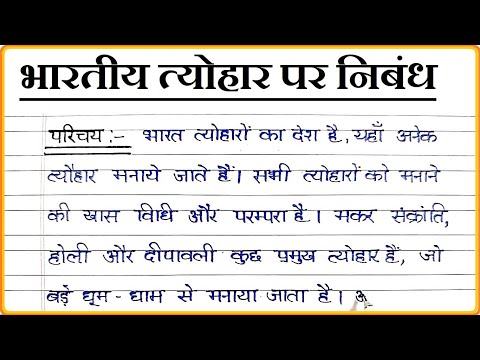 भारतीय त्योहार पर निबंध
परिचय :- भारत त्योहारों का देश है, यहाँ अनेक
त्यौहार मनाये जाते हैं। सभी त्योहारों को मनाने
की खास विधि और परम्परा है। मकर संक्रांति,
होली और दीपावली कुछ प्रमुख त्योहार हैं, जो
बड़े धूम-धाम से मनाया जाता है।